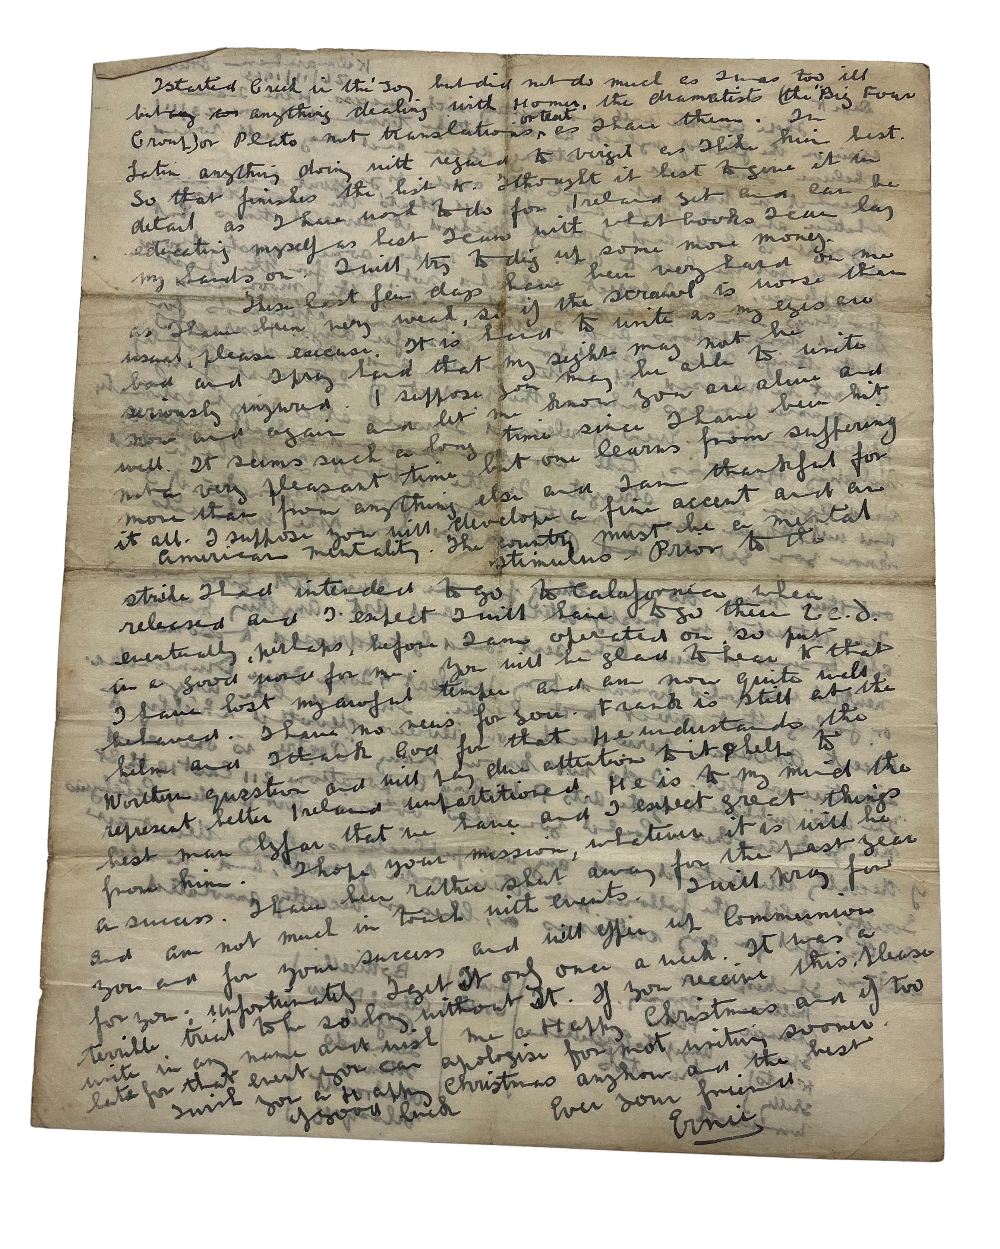 I started Greek in the 'Joy but did not do much as I was too ill
but anything dealing with Homer, the dramatists (the "Big Four
Group) or Plato not translations, or text as I have them. In
Latin anything doing with regard to Virgil as I like him best.
So that finishes the list. I thought it best to give it in
detail as I have work to do for Ireland yet and can be
educating myself as best I can with what books I can lay
my hands on. I will try to dig up some more money.
These last few days have been very hard on me
as I have been very weak, so if the scrawl is worse than
usual, please excuse. It is hard to write as my eyes are
bad and I pray hard that my sight may not be
seriously injured. I suppose you may be able to write
now and again and let me know you are alive and
well. It seems such a long time since I have been hit
not a very pleasant time but one learns from suffering
more than from anything else and I am thankful for
it all. I suppose you will develope a fine accent and an
American mentality. The country must be a mental
stimulus - Prior to the
strike I had intended to go to Calafornica when
released and I expect I will have to go there
eventually, perhaps, before I am operated on, so put
in a good word for me. You will be glad to hear that
I have lost my awful temper and am now quite well
behaved. I have no news for you. Frank is still at the
helm and I thank God for that. He understands the
Workers question and will pay due attention to it & help to
represent better Ireland unpartitioned. He is to my mind the
best man by far that we have and I expect great things
from him. I hope your mission, whatever it is will be
a success. I have been rather shut away for the past year
and am not much in touch with events. I will pray for
you and for your success and will offer up Communion
for you. Unfortunately I get It only once a week. It was a
terrible trial to be so long without It. If you receive this, please
write in any name and wish me a Happy Christmas and if too
late for that event you can apologise for not writing sooner.
I wish you a Happy Christmas anyhow and the best
of good luck
Ever your friend
Ernie